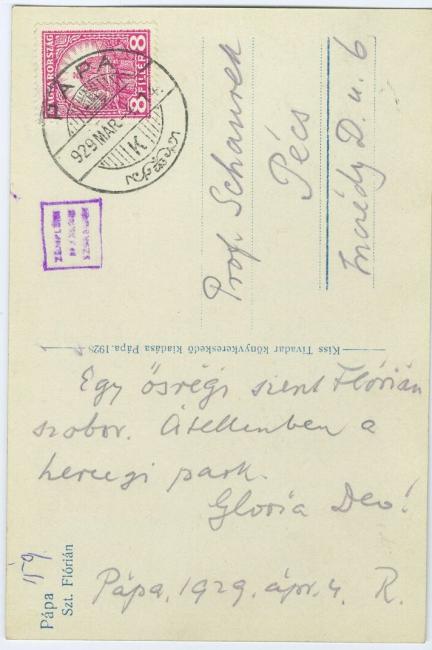 MAGYARORSZÁG
8 FILLÉR 8
PÁPA
929 MÁR.
Prof. Schaurek
Pécs
Inczédy D. u. 6
Kiss Tivadar könyvkereskedő kiadása Pápa. 192
Egy ősrégi szent Flórián
szobor. Átellenben a
hercegi park.
Gloria Deo!
Pápa, 1929. ápr. 4. R.
Pápa
Szt. Flórián